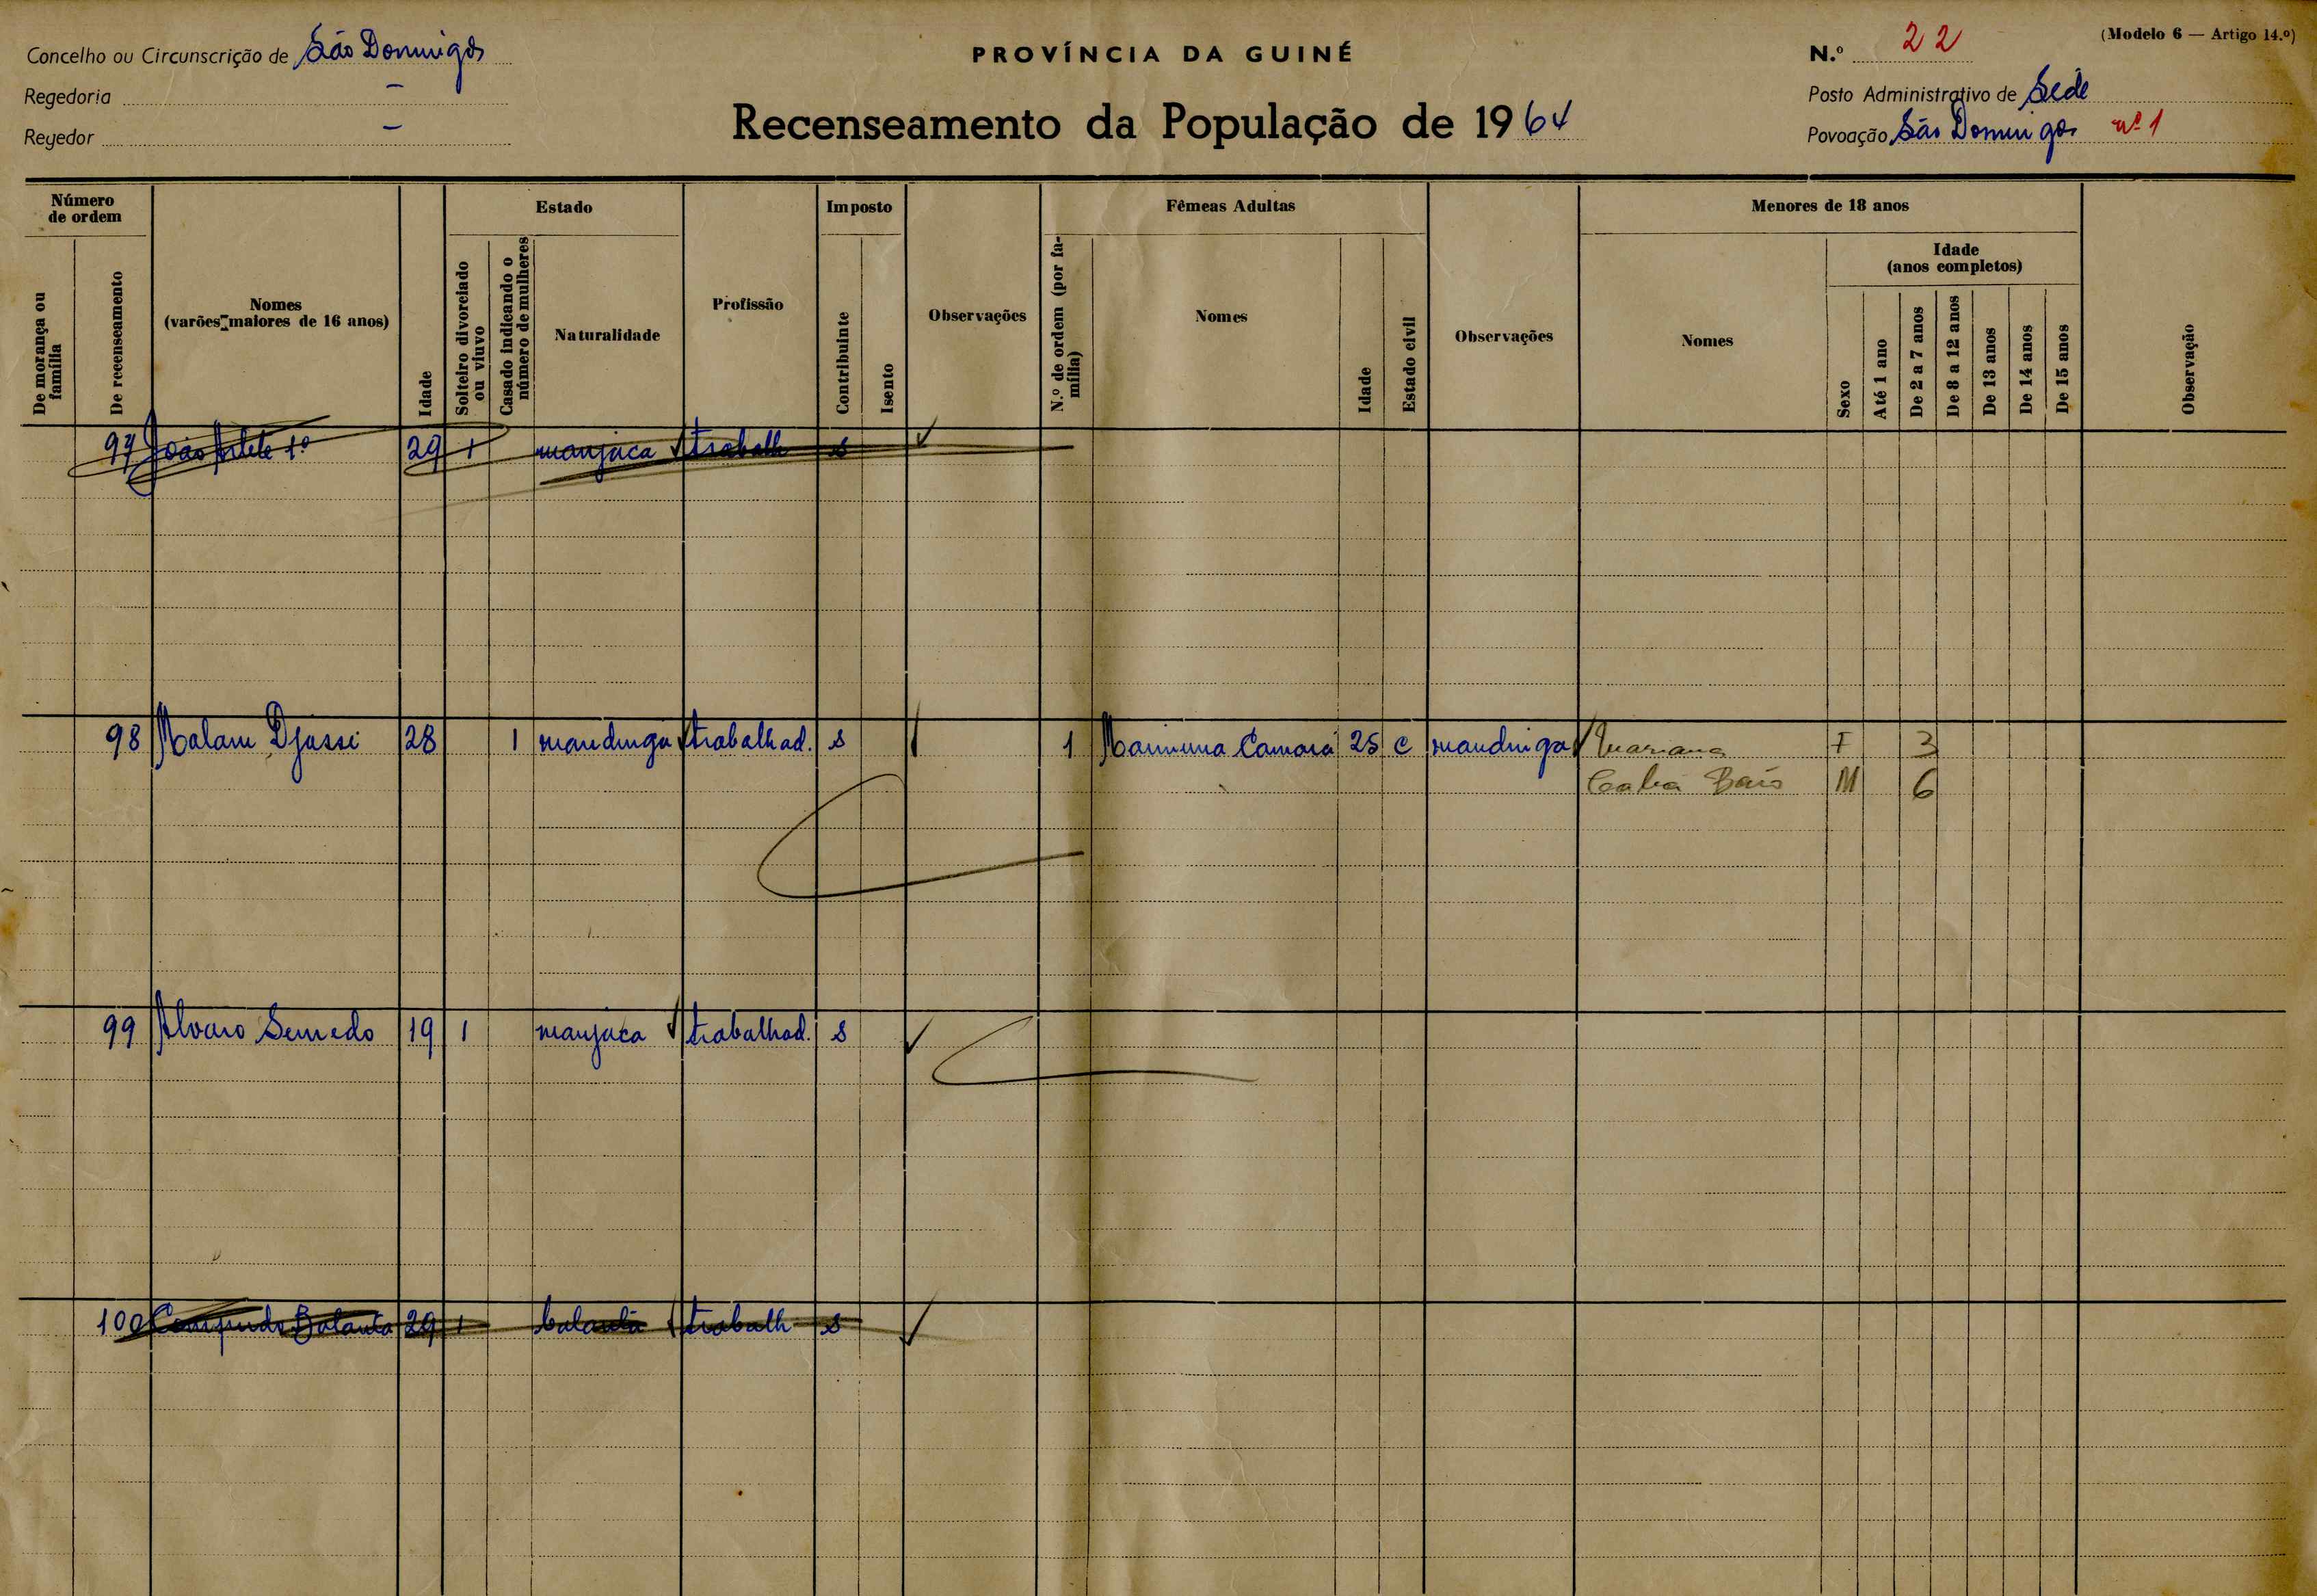 Concelho ou Circunscrição de São Domingos
Regedoria -
Regedor -
PROVÍNCIA DA GUINÉ
Recenseamento da População de 1964
(Modelo 6 — Artigo 14.º)
N.º 22
Posto Administrativo de Sede
Povoação São Domingos nº 1
Número de ordem
De morança ou família
De recenseamento
Nomes
(varões maiores de 16 anos)
Idade
Estado
Solteiro divorciado ou viuvo
Casado indicando o número de mulheres
Naturalidade
Profissão
Imposto
Contribuinte
Isento
Observações
Fêmeas Adultas
N.º de ordem (por família)
Nomes
Idade
Estado civil
Observações
Menores de 18 anos
Nomes
Sexo
Idade
(anos completos)
Até 1 ano
De 2 a 7 anos
De 8 a 12 anos
De 13 anos
De 14 anos
De 15 anos
Observação
97 João 1º 29 1 manjaca trabalh s
98 Malam Djassi 28 1 mandinga trabalhad. s 1 Camará 25 c mandinga Mariama F 3
Baio M 6
99 Alvaro Semedo 19 1 manjaca trabalhad. s
100 Balanta 29 1 balanta trabalh s